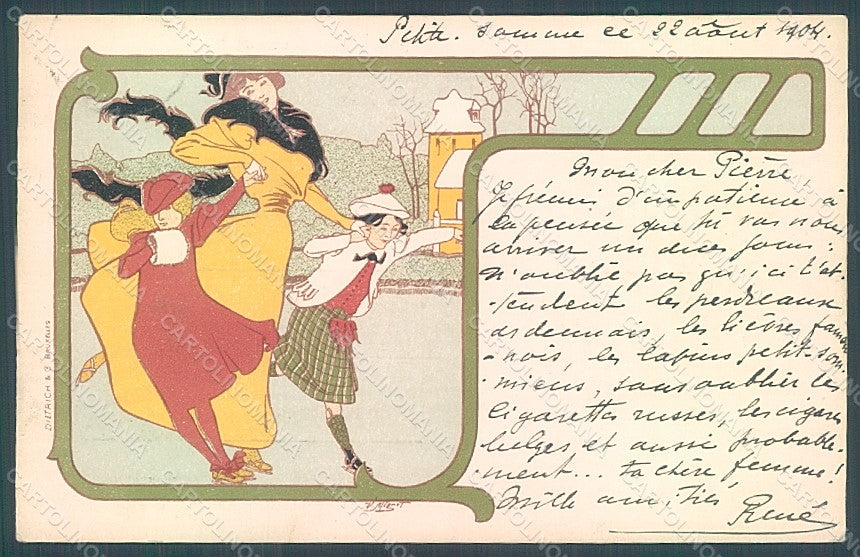 Petite. Somme ce 22 août 1904.
Mon cher Pierre
Je frémis d'impatience à
la pensée que tu vas nous
arriver un des jours.
N'oublie pas qu'ici t'at-
-tendent les perdreaux
ardennais, les lièvres famen-
-nois, les lapins petit-som-
-miens, sans oublier les
cigarettes russes, les cigares
belges, et aussi probable-
-ment... ta chère femme!
Mille amitiés
René
DIETRICH & Cº BRUXELLES
CARTOLINOMANIA